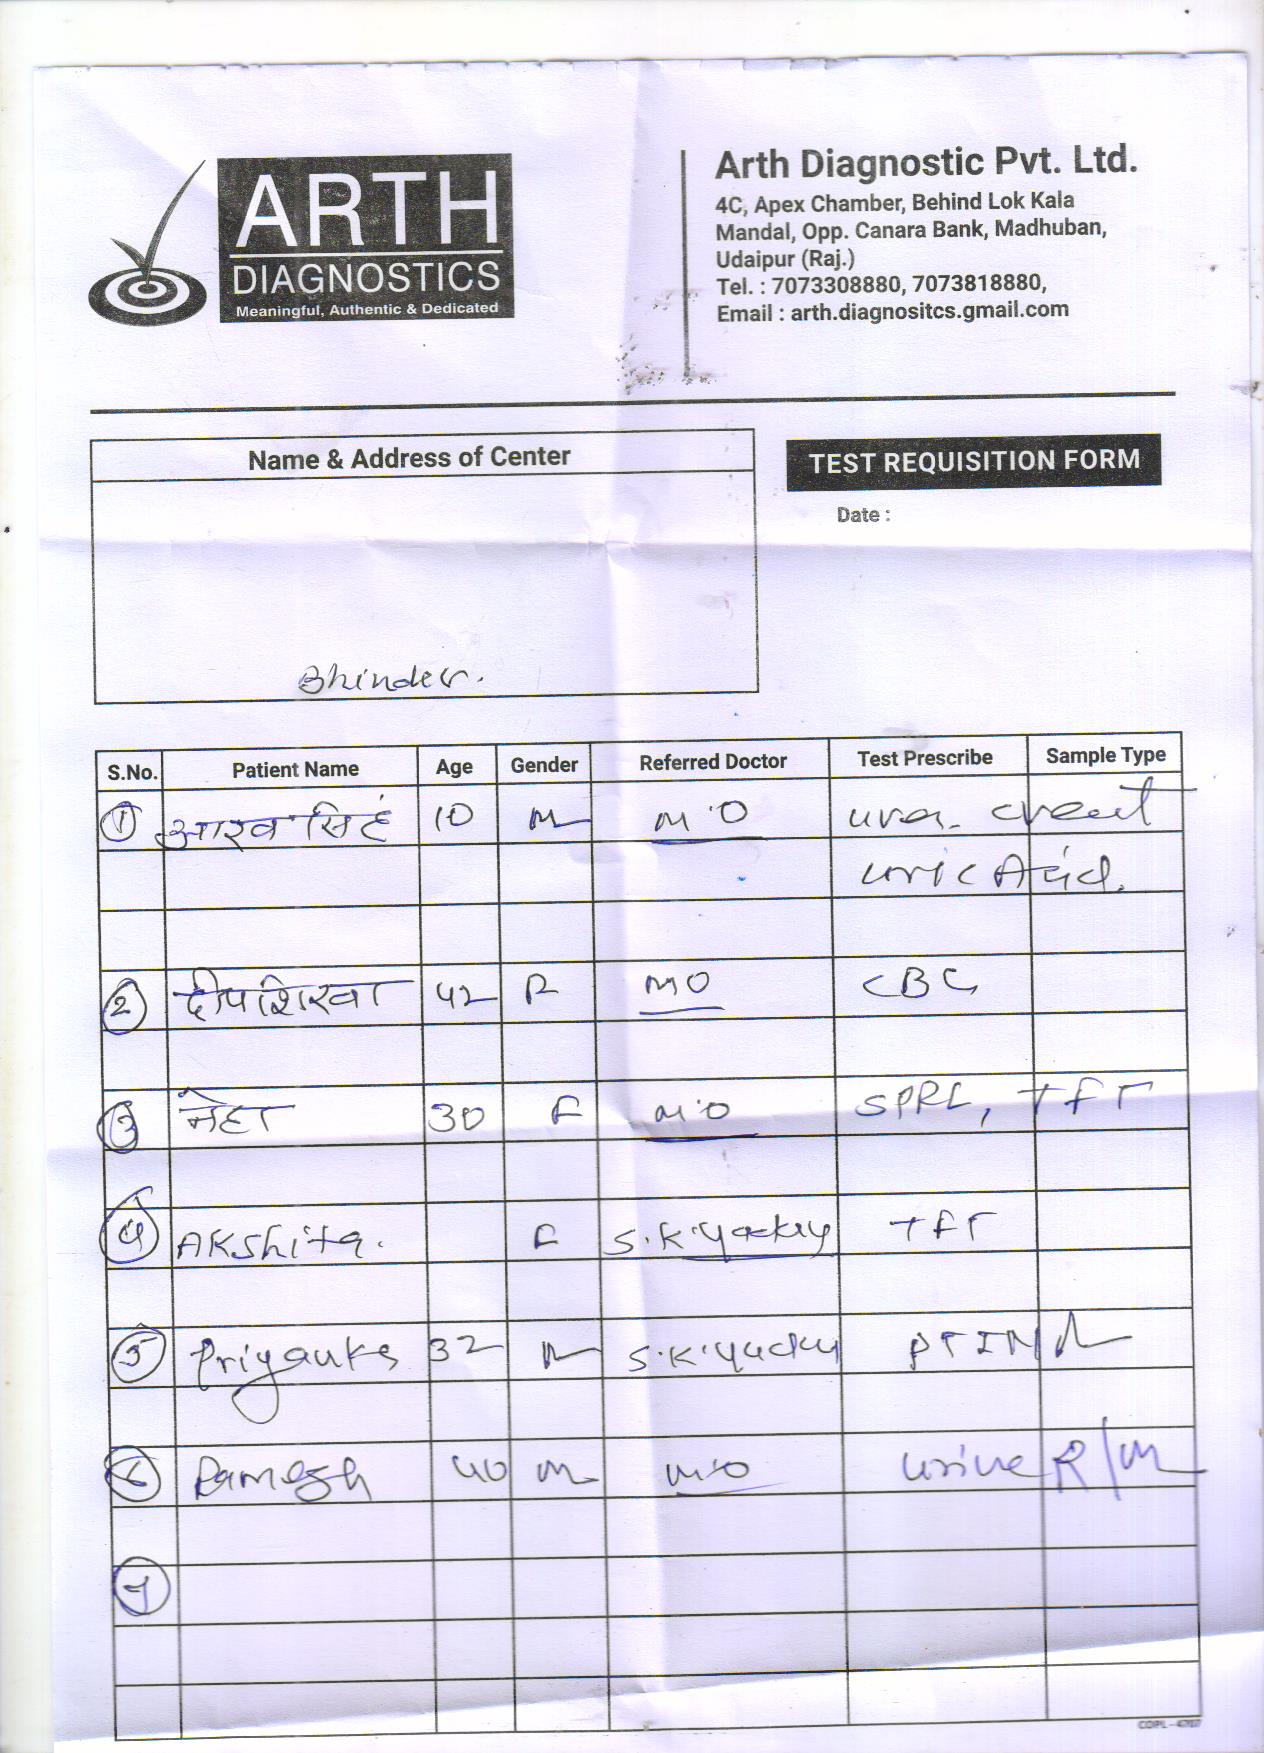 ARTH
DIAGNOSTICS
Meaningful, Authentic & Dedicated
Arth Diagnostic Pvt. Ltd.
4C, Apex Chamber, Behind Lok Kala
Mandal, Opp. Canara Bank, Madhuban,
Udaipur (Raj.)
Tel. : 7073308880, 7073818880,
Email : arth.diagnositcs.gmail.com
Name & Address of Center
TEST REQUISITION FORM
Date :
Bhinder.
S.No. Patient Name Age Gender Referred Doctor Test Prescribe Sample Type
1 आरव सिंह 10 M M.O urea. creat
uric Acid.
2 दीपशिखा 42 F MO CBC
3 नेहा 30 F M.O SPRL, TFT
4 AKShita. F S.K. TFT
5 Priyanka 32 M S.K. PTINR
6 Ramesh 40 M M.O urine R/M
7
COPL - 4707